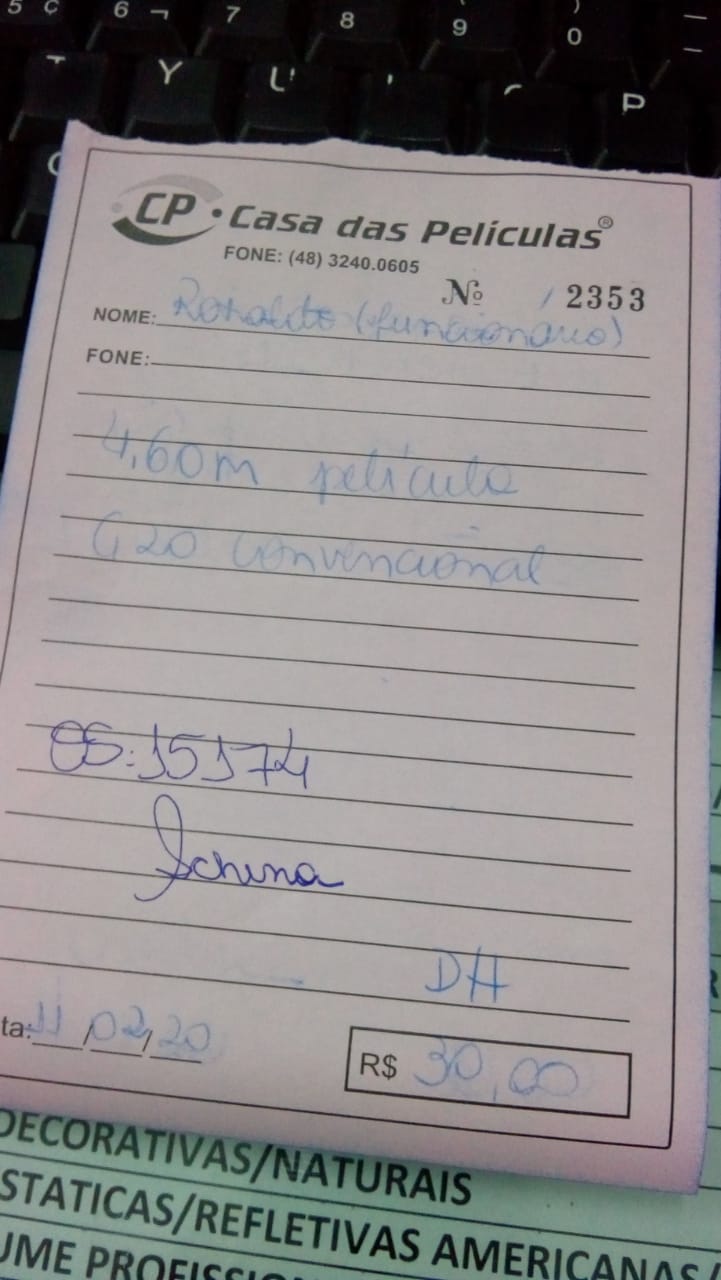 5 6 ¬ 7 8 9 0
Y U P
CP • Casa das Películas®
FONE: (48) 3240.0605
Nº 12353
NOME: Ronaldo (funcionário)
FONE:
4,60m película
G20 convencional
OS: 15174
DH
ta: 11/02/20
R$ 30,00
DECORATIVAS/NATURAIS
STATICAS/REFLETIVAS AMERICANAS/
UME PROFISSI